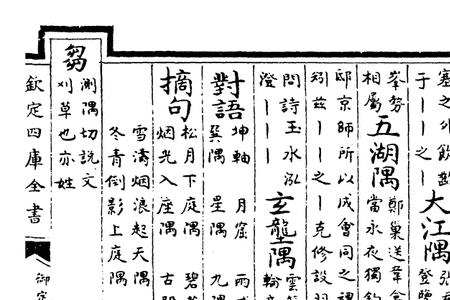 塞之外飲
于丨丨之丨
大江隅
登
峯勢
相屬
五湖隅
鄭巢送韋
當永夜獨
邸京師所以成會同之禮
矧茲丨丨之丨克修設羽
問詩玉水泓
澄丨丨丨
玄壟隅
雲
輸
對語
坤軸 月窟 雨
巽隅 星隅 九隅
摘句
松月下庭隅 碧
烟光入座隅 古
雪濤烟浪起天隅
冬青倒影上庭隅
芻
測隅切說文
刈草也亦姓
欽定四庫全書
御定